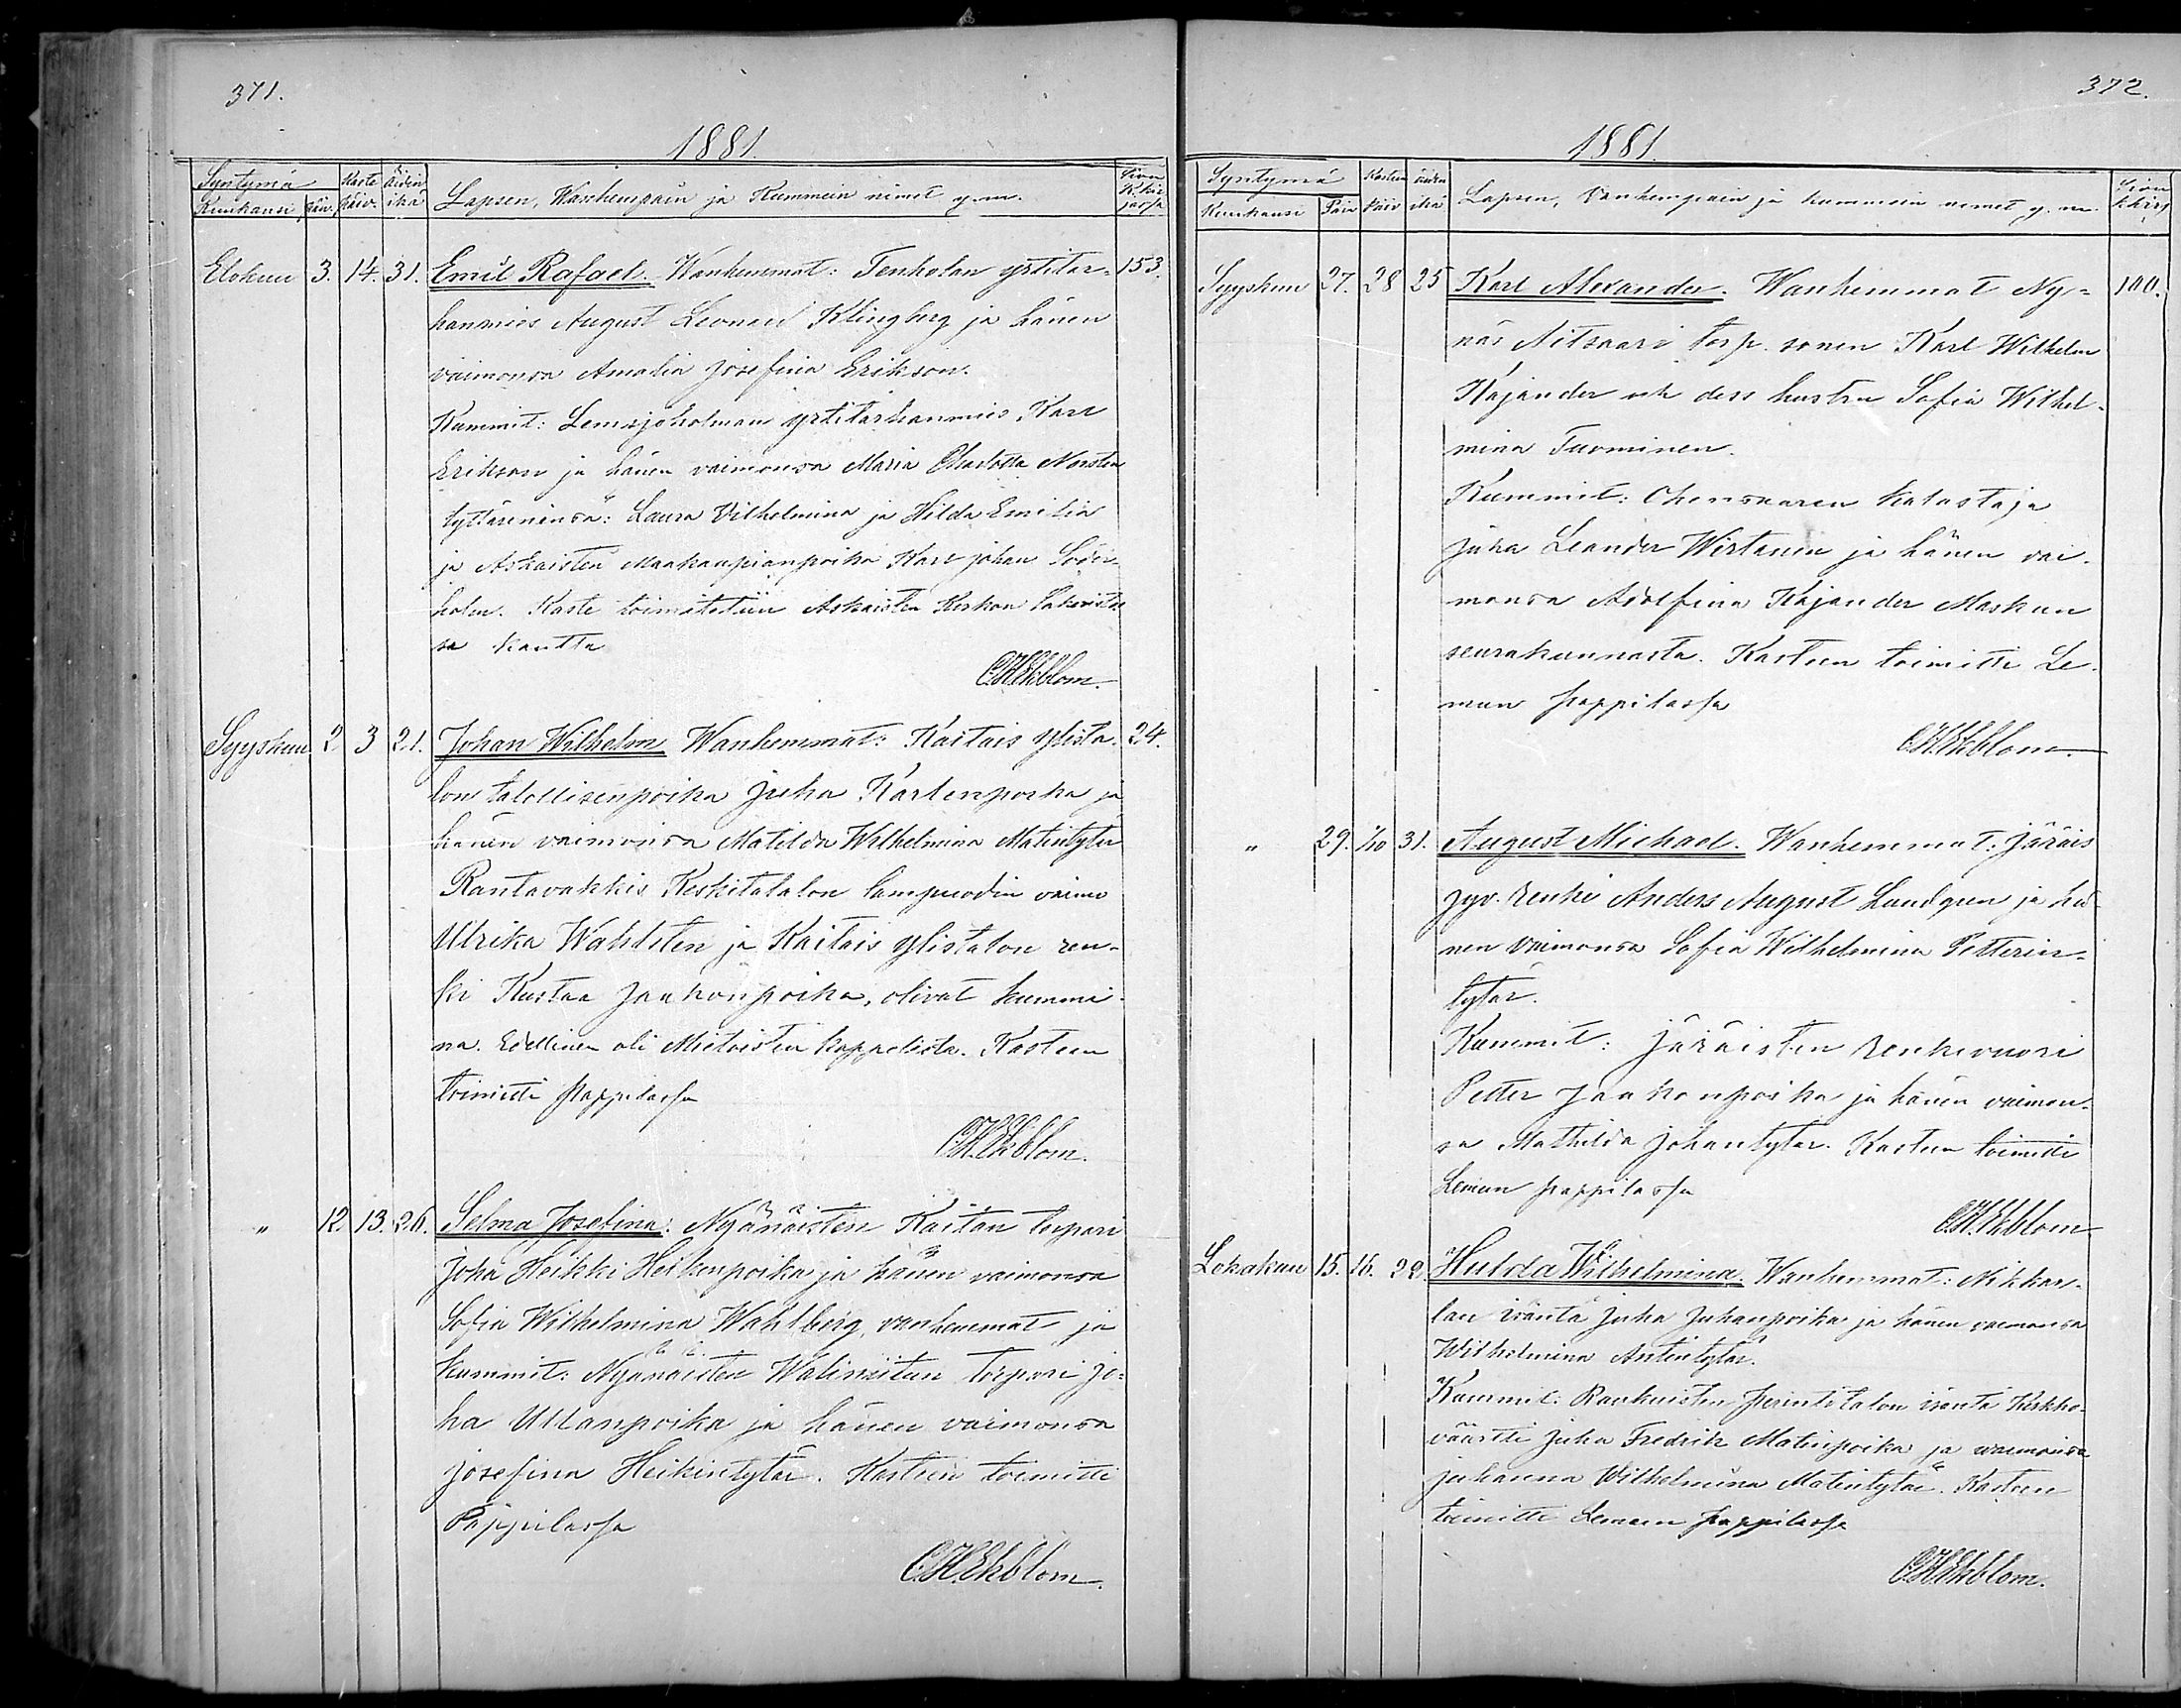 371.
1881.
Syntymä Kaste Äidin Lapsen, Wanhempain ja Kummein nimet y.m. Sivu K.kir
Kuukausi päiv. päiv. ikä jassa
Elokuu 3. 14. 31. Emil Rafael. Wanhemmat: Tenholan yrtitar- 153.
hanmies August Leonard Klingberg ja hänen
vaimonsa Amalia Josefina Erikson.
Kummit: Lemsjöholman yrtitarhanmies Karl
Erikson ja hänen vaimonsa Maria Charlotta Norsten
tyttärenensä: Laura Vilhelmina ja Hilda Emilia
ja Askaisten Maakaupianpoika Karl Johan Söder-
holm. Kaste toimitettiin Askaisten Kirkon
sa kautta
C.H.Ekblom.
Syyskuu 2. 3 21. Johan Wilhelm Wanhemmat: Kaitais Ylista- 24.
lon talollisenpoika Juha Karlenpoika ja
hänen vaimonsa Matilda Wilhelmina Matintytär
Rantavakkis Keskitalon lampuodin vaimo
Ulrika Wahlsten ja Kaitais Ylistalon ren-
ki Kustaa Jaakonpoika, olivat kummi-
na. Edellinen oli Mietoisten kappelista. Kasteen
toimitti Pappilassa
C.H.Ekblom.
" 12. 13. 26. Selma Josefina. Nynäisten Kaitan torpari
Joha Heikki Heikenpoika ja hänen vaimonsa
Sofia Wilhelmina Wahlberg, vanhemmat ja
kummit: Nynäisten Waliniitun torpari Jo-
ha Ullanpoika ja hänen vaimonsa
Josefina Heikintytär. Kasteen toimitti
Pappilassa
C.H.Ekblom.
372.
1881.
Syntymä Kasteen äidin Lapsen, Vanhempain ja kummein nimet y.m. Sivu
Kuukausi Päiv Päiv ikä k.kirj
Syyskuu 27. 28 25 Karl Alexander. Wanhemmat Ny- 100.
näs Aitsaari torp. sonen Karl Wilhelm
Kajander och dess hustru Sofia Wilhel-
mina Tuominen.
Kummit: Ohensaaren kalastaja
Juha Leander Wirtanen ja hänen vai-
monsa Adolfina Kajander Maskun
seurakunnasta. Kasteen toimitti Le-
mun pappilassa
C.H.Ekblom.
" 29. 1/10 31. August Michael. Wanhemmat: Järäis
Jyv. Renki Anders August Lundgren ja hä-
nen vaimonsa Sofia Wilhelmina Petterin-
tytär.
Kummit: Järäisten Renkivuori
Petter Jaakonpoika ja hänen vaimon-
sa Mathilda Johantytär. Kasteen toimitti
Lemun pappilassa
C.H.Ekblom
Lokakuu 15. 16. 22. Hulda Wilhelmina. Wanhemmat: Nikkar-
lan isäntä Juha Juhanpoika ja hänen vaimonsa
Wilhelmina Antintytär.
Kummit: Raukuisten Perintötalon isäntä Kirkko-
väärtti Juha Fredrik Matinpoika ja waimonsa
Juhanna Wilhelmina Matintytär. Kasteen
toimitti Lemun pappilassa
C.H.Ekblom.